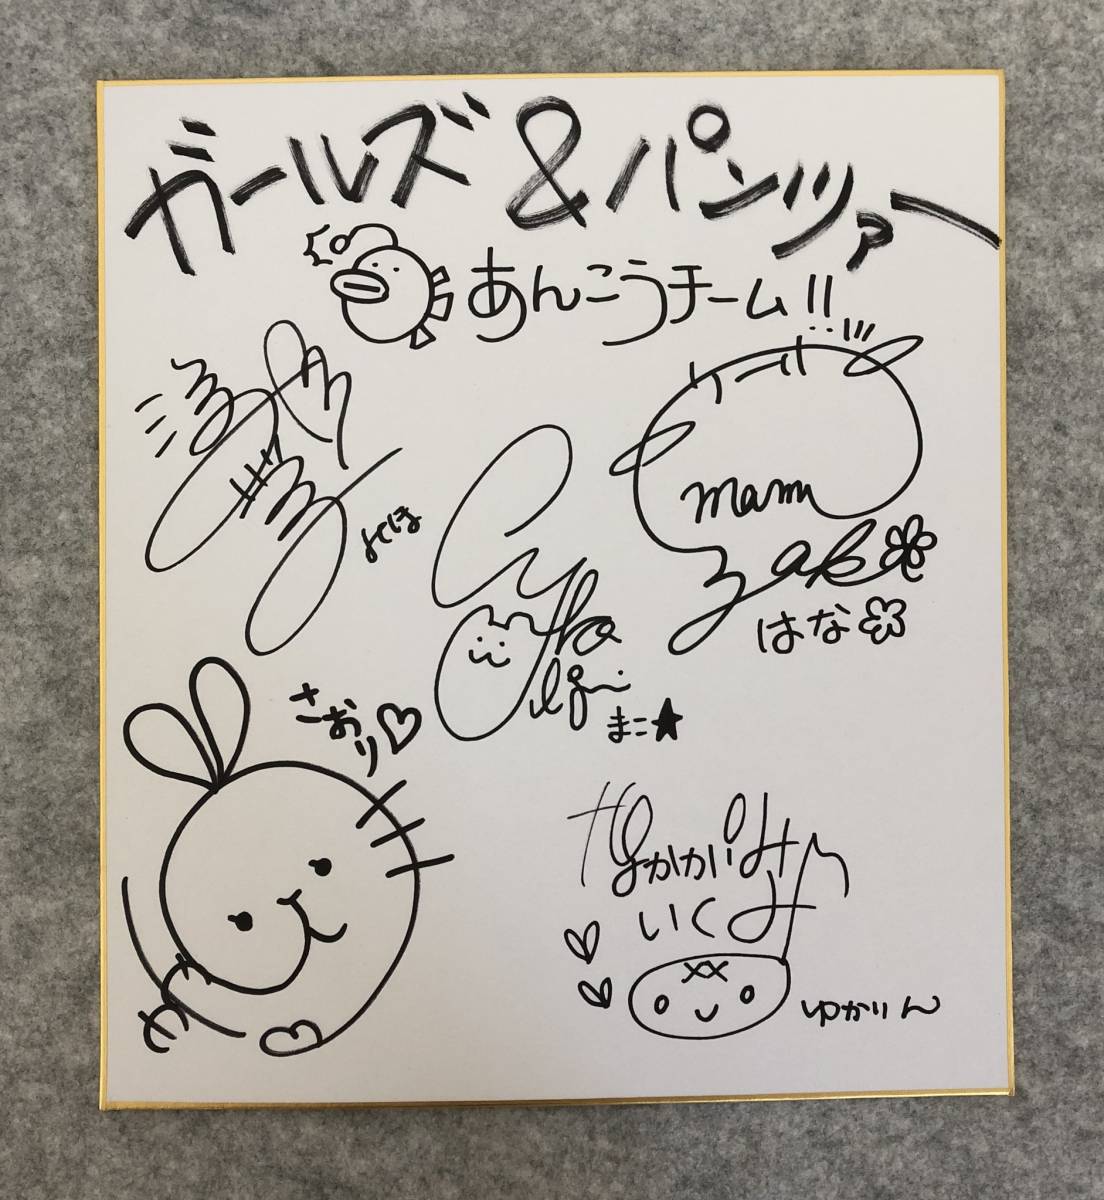 ガールズ&パンツァー
あんこうチーム!!
みほ
mami
ozaki
はな
まこ★
さおり♡
なかかいみ
いくみ
ゆかりん